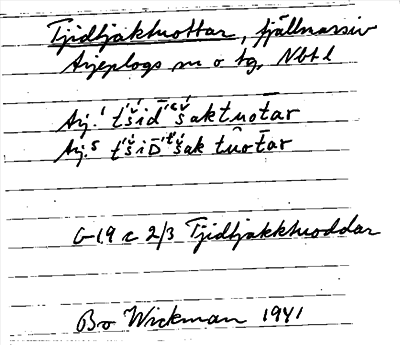 Tjidtjaktuottar, fjällmassiv
Arjeplogs sn o tg, Nbtl
Arj.¹ t́šiD́ᵗ́šaktuot̄ar
Arj.⁵ t́šiD̄ᵗ́šak tûot̄ar
G-19 c 2/3 Tjidtjakktuoddar
Bo Wickman 1941